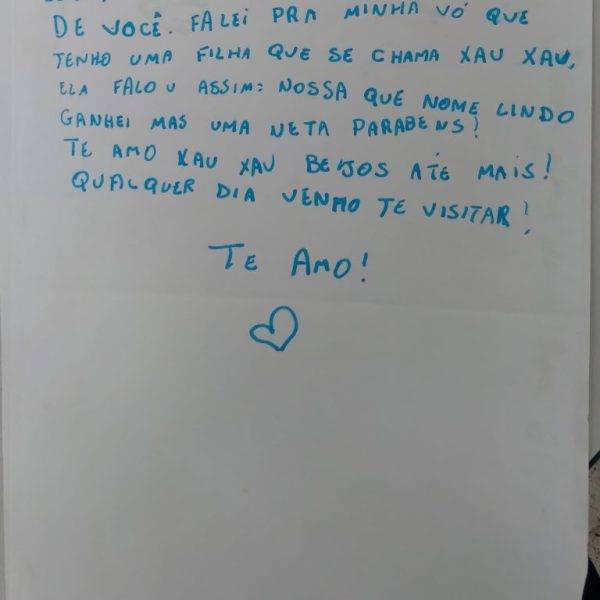 DE VOCÊ. FALEI PRA MINHA VÓ QUE
TENHO UMA FILHA QUE SE CHAMA XAU XAU,
ELA FALOU ASSIM: NOSSA QUE NOME LINDO
GANHEI MAS UMA NETA PARABENS!
TE AMO XAU XAU BEIJOS ATÉ MAIS!
QUALQUER DIA VENHO TE VISITAR!
TE AMO!